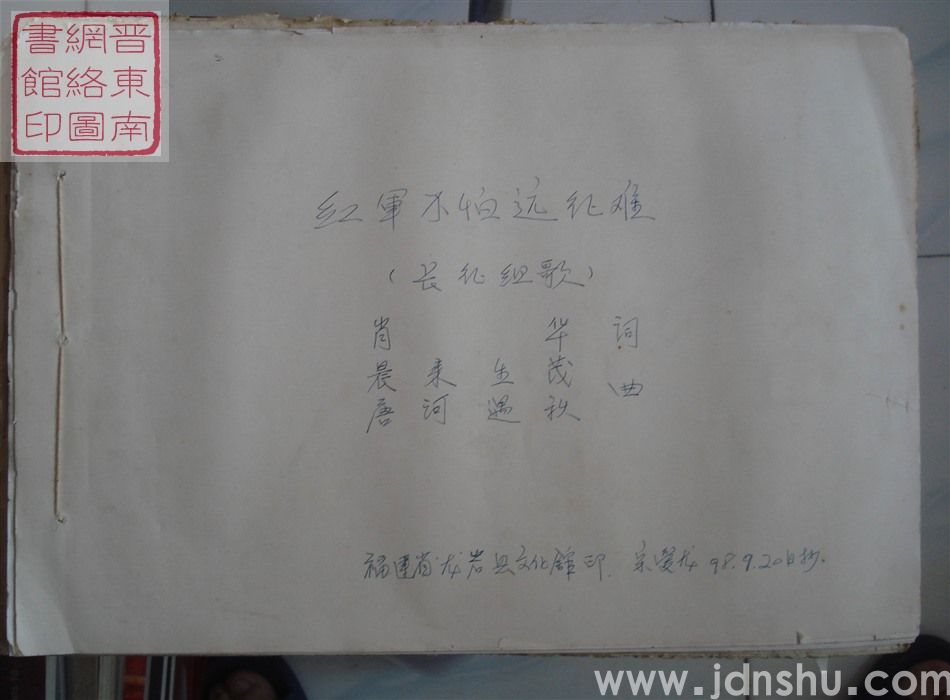 晋東南
網絡圖
書館印
红軍不怕远征难
（长征组歌）
肖 华 词
晨 耒 生 茂
唐 诃 遇 秋 曲
福建省龙岩县文化館印 宗 龙 98.9.20日抄.
www.jdnshu.com